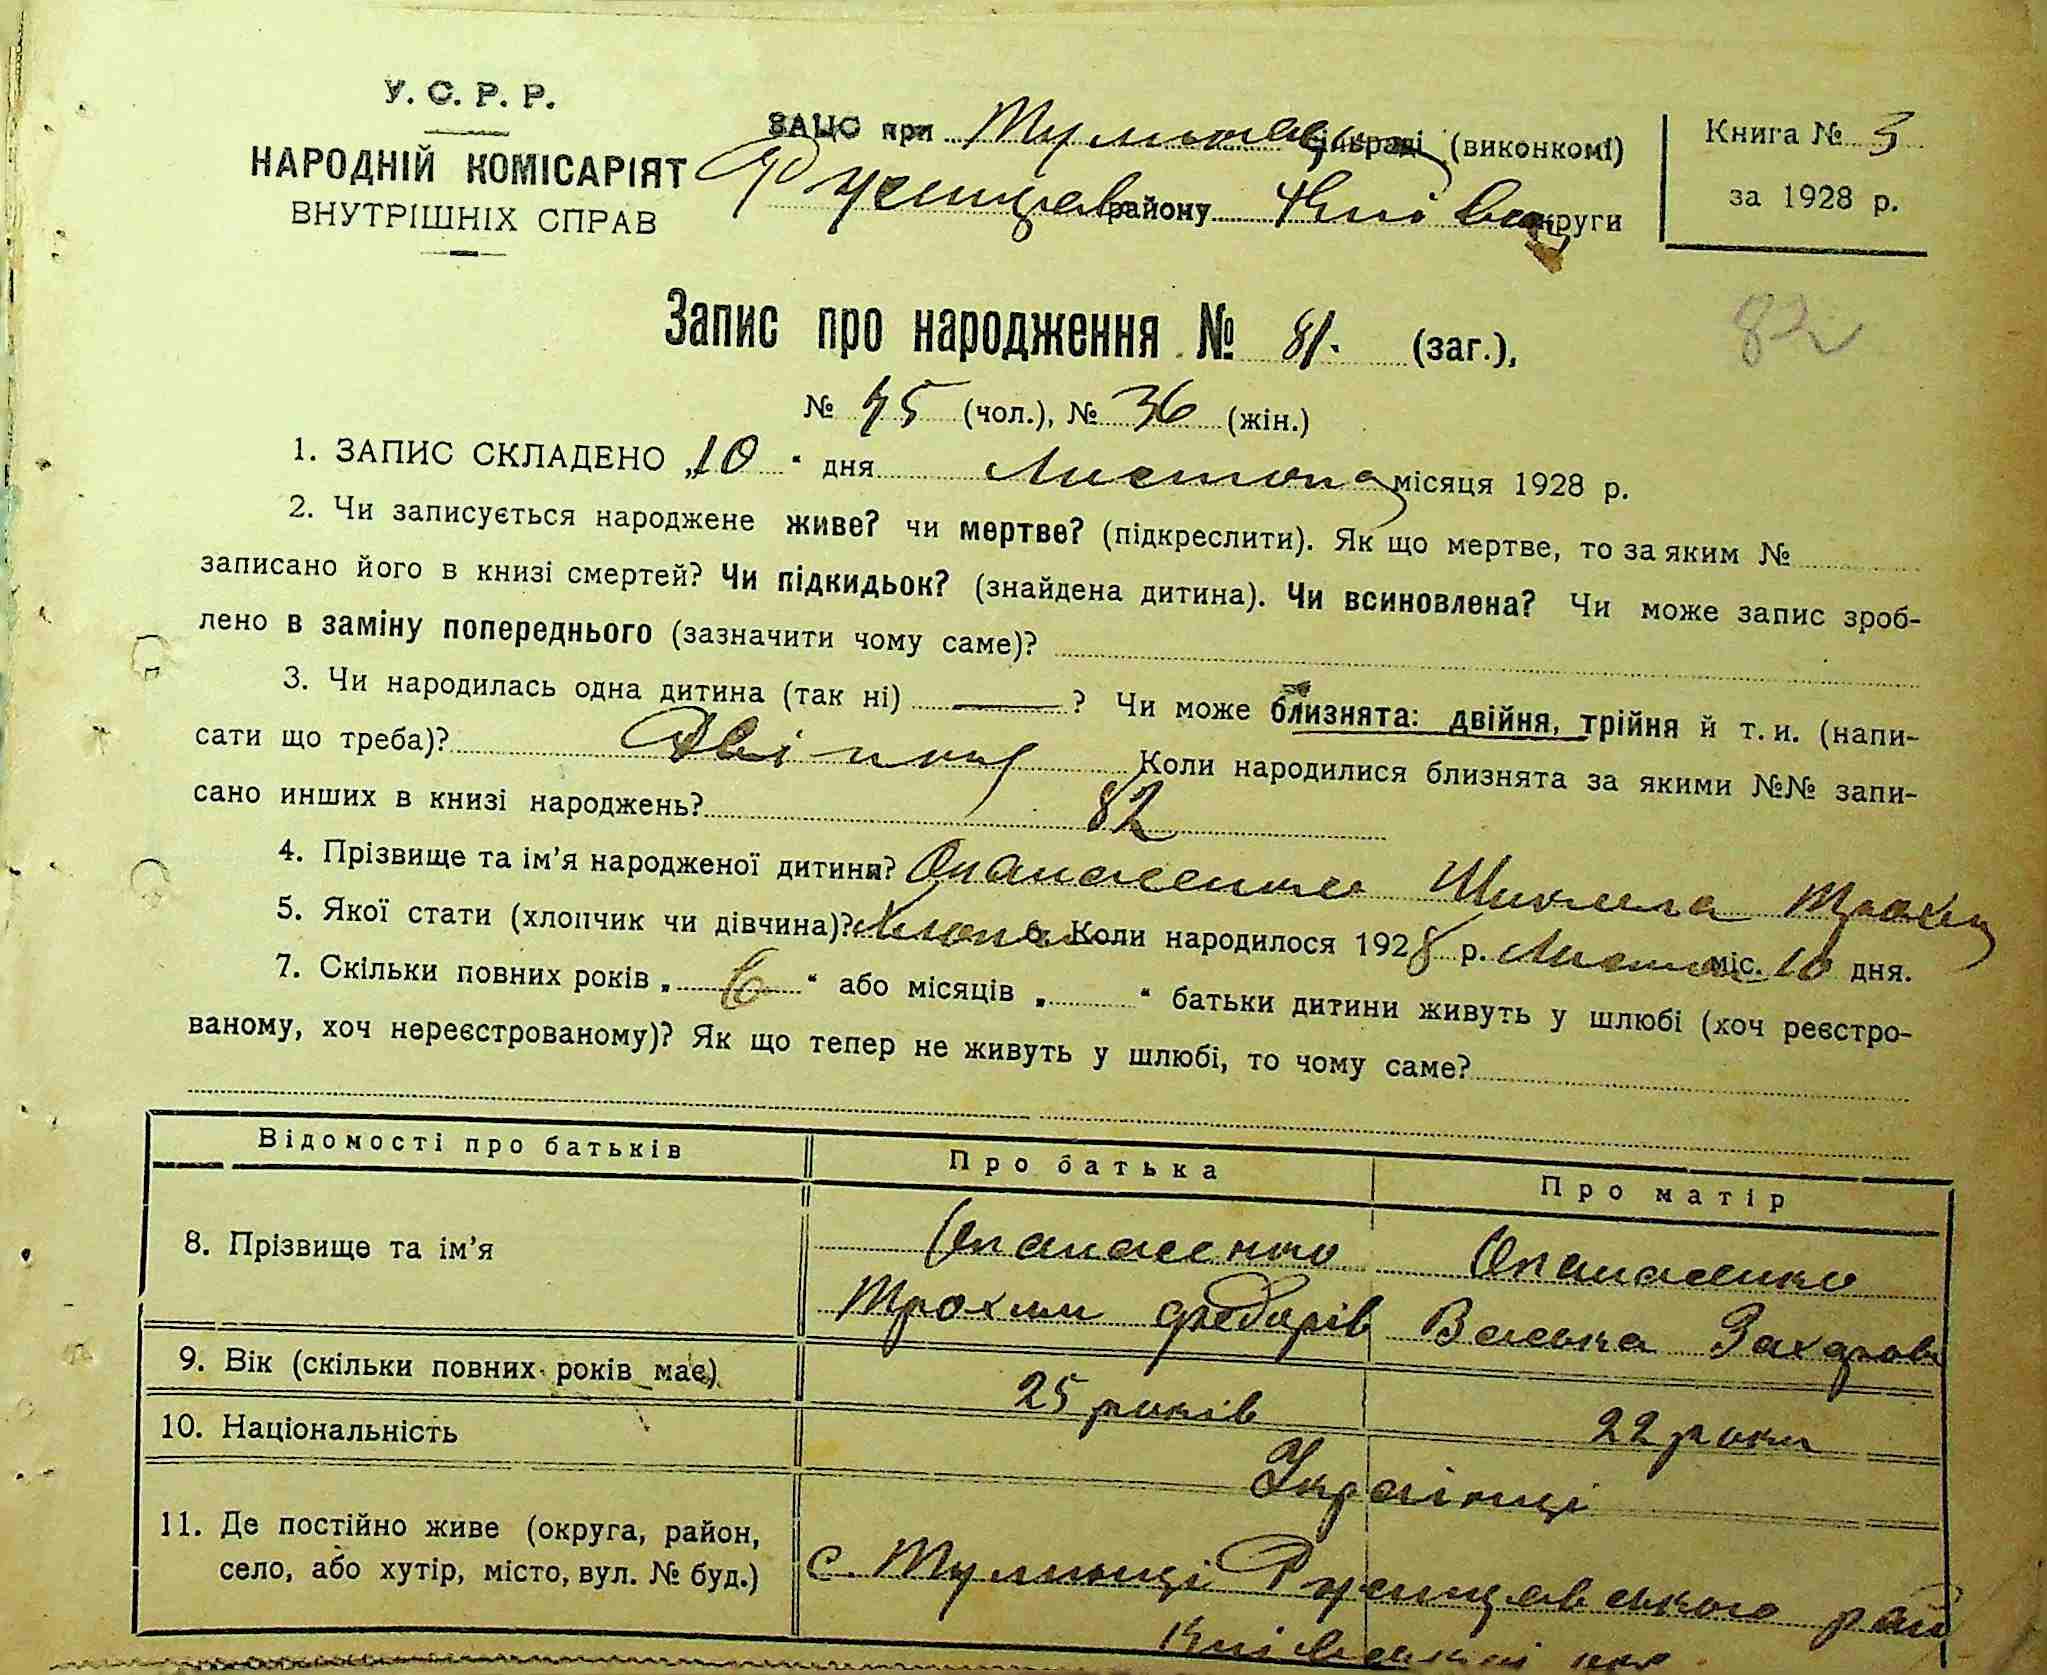 У. С. Р. Р.
НАРОДНІЙ КОМІСАРІЯТ
ВНУТРІШНІХ СПРАВ
ЗАЦС при сільраді (виконкомі)
району Київ округи
Книга № 3
за 1928 р.
82
Запис про народження № 81. (заг.),
№ 45 (чол.), № 36 (жін.)
1. ЗАПИС СКЛАДЕНО „10“ дня Листопад місяця 1928 р.
2. Чи записується народжене живе? чи мертве? (підкреслити). Як що мертве, то за яким №
записано його в книзі смертей? Чи підкидьок? (знайдена дитина). Чи всиновлена? Чи може запис зроб-
лено в заміну попереднього (зазначити чому саме)?
3. Чи народилась одна дитина (так ні) — ? Чи може близнята: двійня, трійня й т. и. (напи-
сати що треба)? Коли народилися близнята за якими №№ запи-
сано инших в книзі народжень? 82
4. Прізвище та ім'я народженої дитини? Опанасенко Микола Трохим
5. Якої стати (хлопчик чи дівчина)? 6. Коли народилося 1928 р. міс. 10 дня.
7. Скільки повних років „6“ або місяців „ “ батьки дитини живуть у шлюбі (хоч реєстро-
ваному, хоч нереєстрованому)? Як що тепер не живуть у шлюбі, то чому саме?
Відомості про батьків Про батька Про матір
8. Прізвище та ім'я Опанасенко Опанасенко
Трохим Федорів Васька Захаров
9. Вік (скільки повних років має) 25 років 22 роки
10. Національність Українці
11. Де постійно живе (округа, район,
село, або хутір, місто, вул. № буд.) с. Тулинці Ржищівського рай
Київської окр.